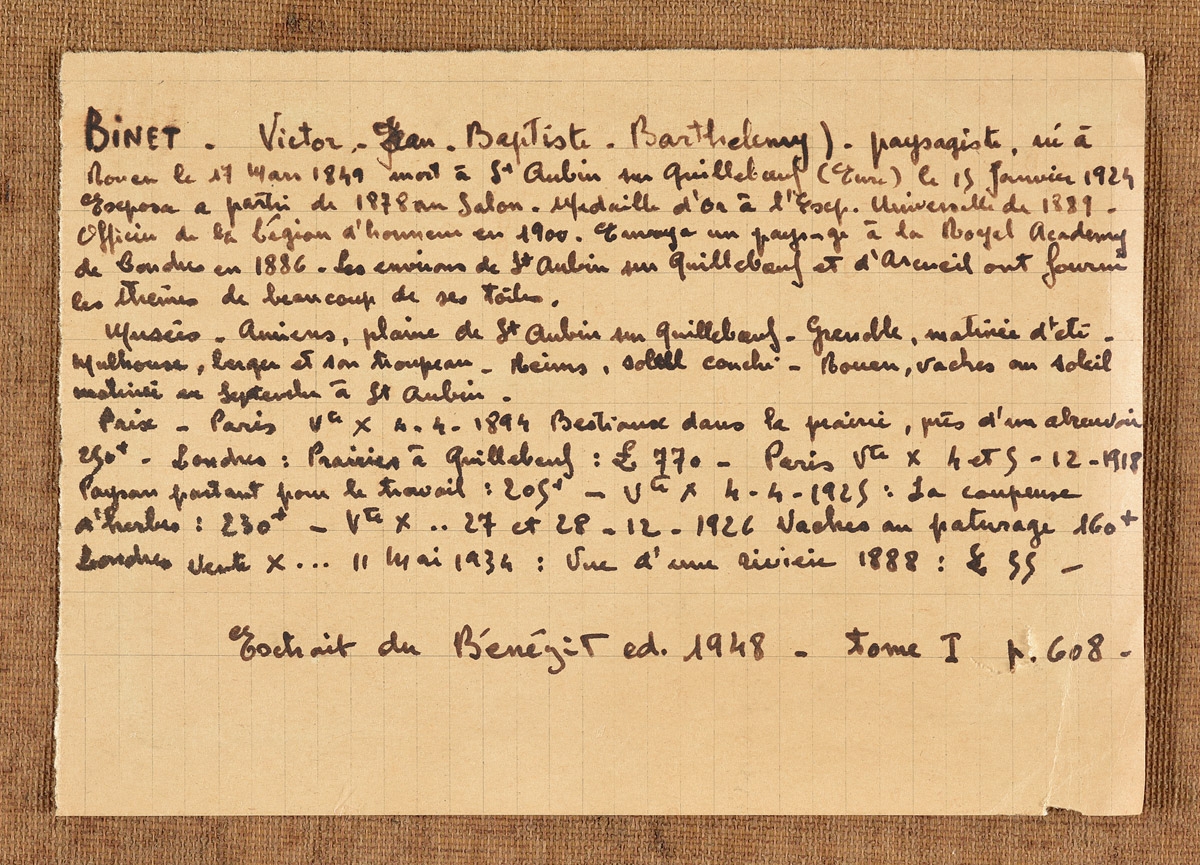 BINET - Victor - Jean - Baptiste - Barthelemy) - paysagiste, né à
Rouen le 17 Mars 1849 mort à St Aubin sur Quillebeuf (Eure) le 15 Janvier 1924
Exposa a partir de 1878 au Salon - Medaille d'Or à l'Exp. Universelle de 1889 -
Officier de la Légion d'honneur en 1900. Envoya un paysage à la Royal Academy
de Londres en 1886 - Les environs de St Aubin sur Quillebeuf et d'Arcueil ont fourni
les thèmes de beaucoup de ses toiles.
Musées - Amiens, plaine de St Aubin sur Quillebeuf - Grenoble, matinée d'été -
Mulhouse, berger et son troupeau - Reims, soleil couché - Rouen, vaches au soleil
matinée en Septembre à St Aubin -
Prix - Paris Vte X 4-4-1894 Bestiaux dans la prairie, près d'un abreuvoir
250+ - Londres : Prairies à Quillebeuf : £ 770 - Paris Vte X 4 et 5-12-1918
Paysan partant pour le travail : 205+ - Vte X 4-4-1925 : La coupeuse
d'herbes : 230+ - Vte X .. 27 et 28-12-1926 Vaches au paturage 160+
Londres Vente X... 11 Mai 1934 : Vue d'une rivière 1888 : £ 55 -
Extrait du Bénézit ed. 1948 - tome I p. 608 -